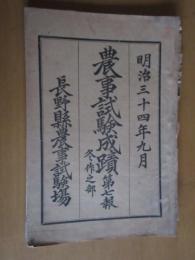 明治三十四年九月
農事試驗成蹟第七報
冬作之部
長野縣農事試驗場